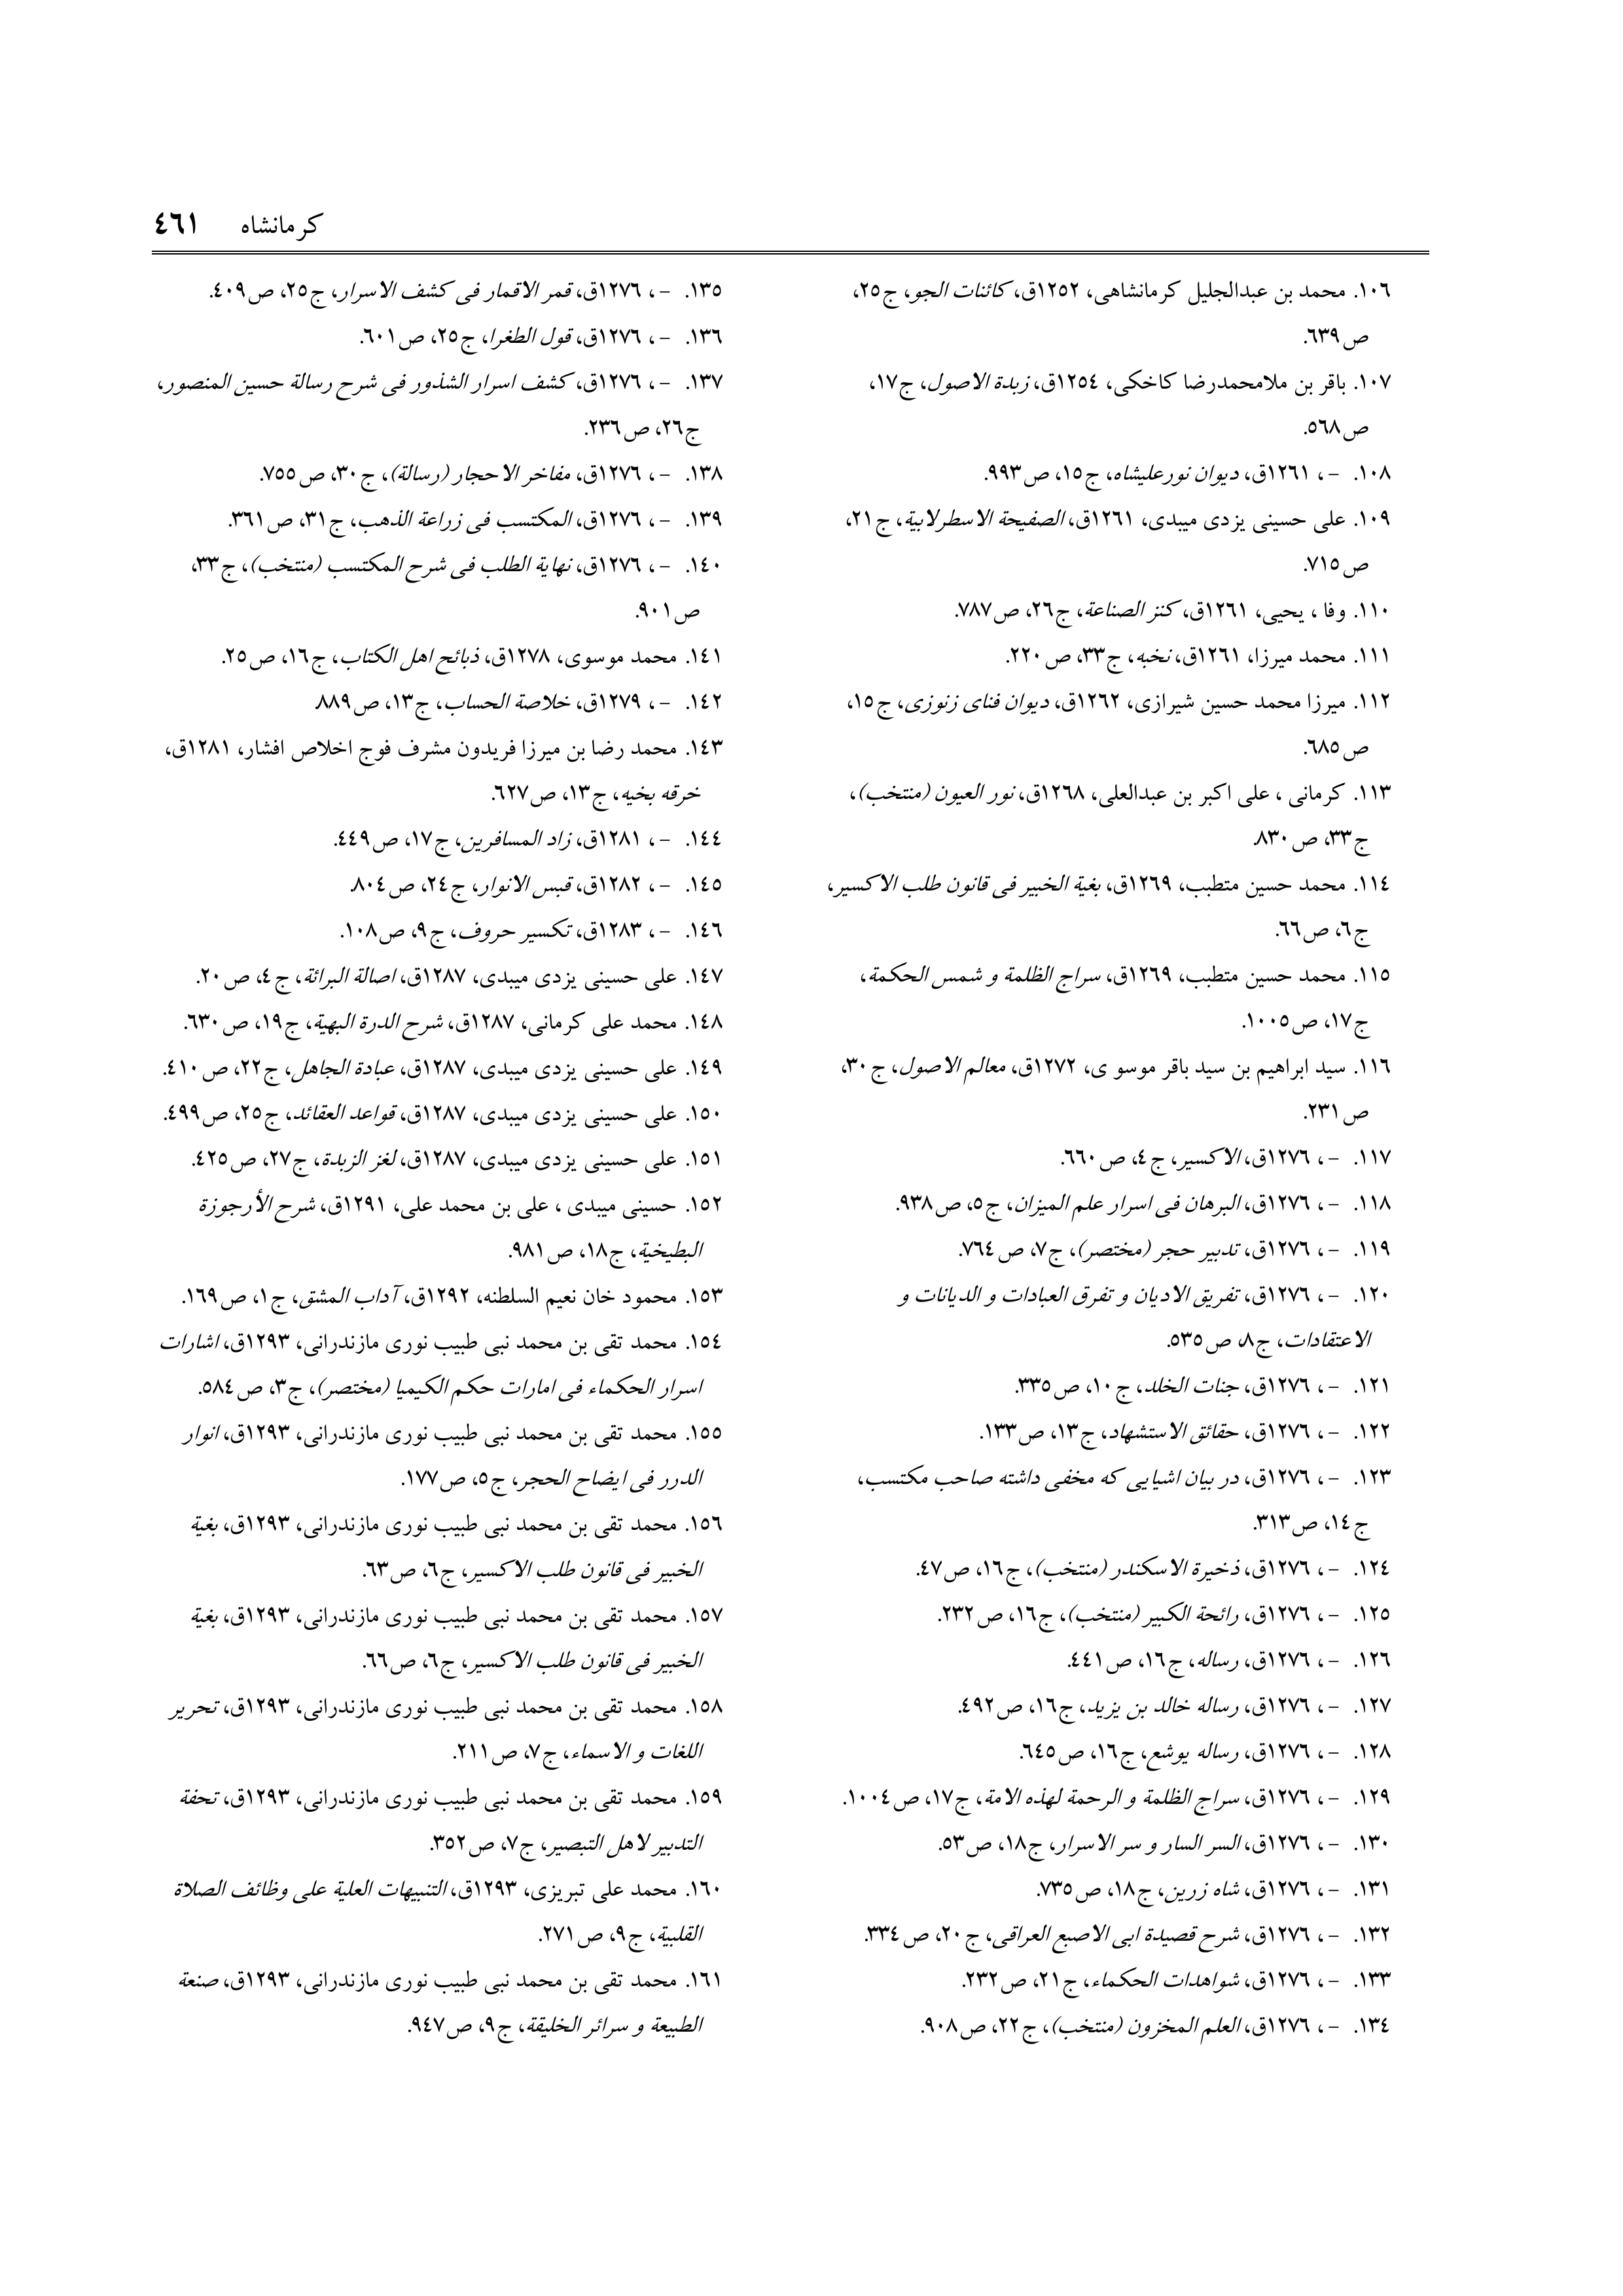 کرمانشاه ٤٦١
١٠٦. محمد بن عبدالجلیل کرمانشاهی، ١٢٥٢ق، کائنات الجو، ج٢٥،
ص٦٣٩.
١٠٧. باقر بن ملامحمدرضا کاخکی، ١٢٥٤ق، زبدة الاصول، ج١٧،
ص٥٦٨.
١٠٨. -، ١٢٦١ق، دیوان نورعلیشاه، ج١٥، ص٩٩٣.
١٠٩. علی حسینی یزدی میبدی، ١٢٦١ق، الصفیحة الاسطرلابیة، ج٢١،
ص٧١٥.
١١٠. وفا ، یحیی، ١٢٦١ق، کنز الصناعة، ج٢٦، ص٧٨٧.
١١١. محمد میرزا، ١٢٦١ق، نخبه، ج٣٣، ص٢٢٠.
١١٢. میرزا محمد حسین شیرازی، ١٢٦٢ق، دیوان فنای زنوزی، ج١٥،
ص٦٨٥.
١١٣. کرمانی ، علی اکبر بن عبدالعلی، ١٢٦٨ق، نور العیون (منتخب)،
ج٣٣، ص٨٣٠.
١١٤. محمد حسین متطبب، ١٢٦٩ق، بغیة الخبیر فی قانون طلب الاکسیر،
ج٦، ص٦٦.
١١٥. محمد حسین متطبب، ١٢٦٩ق، سراج الظلمة و شمس الحکمة،
ج١٧، ص١٠٠٥.
١١٦. سید ابراهیم بن سید باقر موسو ی، ١٢٧٢ق، معالم الاصول، ج٣٠،
ص٢٣١.
١١٧. -، ١٢٧٦ق، الاکسیر، ج٤، ص٦٦٠.
١١٨. -، ١٢٧٦ق، البرهان فی اسرار علم المیزان، ج٥، ص٩٣٨.
١١٩. -، ١٢٧٦ق، تدبیر حجر (مختصر)، ج٧، ص٧٦٤.
١٢٠. -، ١٢٧٦ق، تفریق الادیان و تفرق العبادات و الدیانات و
الاعتقادات، ج٨، ص٥٣٥.
١٢١. -، ١٢٧٦ق، جنات الخلد، ج١٠، ص٣٣٥.
١٢٢. -، ١٢٧٦ق، حقائق الاستشهاد، ج١٣، ص١٣٣.
١٢٣. -، ١٢٧٦ق، در بیان اشیایی که مخفی داشته صاحب مکتسب،
ج١٤، ص٣١٣.
١٢٤. -، ١٢٧٦ق، ذخیرة الاسکندر (منتخب)، ج١٦، ص٤٧.
١٢٥. -، ١٢٧٦ق، رائحة الکبیر (منتخب)، ج١٦، ص٢٣٢.
١٢٦. -، ١٢٧٦ق، رساله، ج١٦، ص٤٤١.
١٢٧. -، ١٢٧٦ق، رساله خالد بن یزید، ج١٦، ص٤٩٢.
١٢٨. -، ١٢٧٦ق، رساله یوشع، ج١٦، ص٦٤٥.
١٢٩. -، ١٢٧٦ق، سراج الظلمة و الرحمة لهذه الامة، ج١٧، ص١٠٠٤.
١٣٠. -، ١٢٧٦ق، السر السار و سر الاسرار، ج١٨، ص٥٣.
١٣١. -، ١٢٧٦ق، شاه زرین، ج١٨، ص٧٣٥.
١٣٢. -، ١٢٧٦ق، شرح قصیدة ابی الاصبع العراقی، ج٢٠، ص٣٣٤.
١٣٣. -، ١٢٧٦ق، شواهدات الحکماء، ج٢١، ص٢٣٢.
١٣٤. -، ١٢٧٦ق، العلم المخزون (منتخب)، ج٢٢، ص٩٠٨.
١٣٥. -، ١٢٧٦ق، قمر الاقمار فی کشف الاسرار، ج٢٥، ص٤٠٩.
١٣٦. -، ١٢٧٦ق، قول الطغرا، ج٢٥، ص٦٠١.
١٣٧. -، ١٢٧٦ق، کشف اسرار الشذور فی شرح رسالة حسین المنصور،
ج٢٦، ص٢٣٦.
١٣٨. -، ١٢٧٦ق، مفاخر الاحجار (رسالة)، ج٣٠، ص٧٥٥.
١٣٩. -، ١٢٧٦ق، المکتسب فی زراعة الذهب، ج٣١، ص٣٦١.
١٤٠. -، ١٢٧٦ق، نهایة الطلب فی شرح المکتسب (منتخب)، ج٣٣،
ص٩٠١.
١٤١. محمد موسوی، ١٢٧٨ق، ذبائح اهل الکتاب، ج١٦، ص٢٥.
١٤٢. -، ١٢٧٩ق، خلاصة الحساب، ج١٣، ص٨٨٩.
١٤٣. محمد رضا بن میرزا فریدون مشرف فوج اخلاص افشار، ١٢٨١ق،
خرقه بخیه، ج١٣، ص٦٢٧.
١٤٤. -، ١٢٨١ق، زاد المسافرین، ج١٧، ص٤٤٩.
١٤٥. -، ١٢٨٢ق، قبس الانوار، ج٢٤، ص٨٠٤.
١٤٦. -، ١٢٨٣ق، تکسیر حروف، ج٩، ص١٠٨.
١٤٧. علی حسینی یزدی میبدی، ١٢٨٧ق، اصالة البرائة، ج٤، ص٢٠.
١٤٨. محمد علی کرمانی، ١٢٨٧ق، شرح الدرة البهیة، ج١٩، ص٦٣٠.
١٤٩. علی حسینی یزدی میبدی، ١٢٨٧ق، عبادة الجاهل، ج٢٢، ص٤١٠.
١٥٠. علی حسینی یزدی میبدی، ١٢٨٧ق، قواعد العقائد، ج٢٥، ص٤٩٩.
١٥١. علی حسینی یزدی میبدی، ١٢٨٧ق، لغز الزبدة، ج٢٧، ص٤٢٥.
١٥٢. حسینی میبدی ، علی بن محمد علی، ١٢٩١ق، شرح الأرجوزة
البطیخیة، ج١٨، ص٩٨١.
١٥٣. محمود خان نعیم السلطنه، ١٢٩٢ق، آداب المشق، ج١، ص١٦٩.
١٥٤. محمد تقی بن محمد نبی طبیب نوری مازندرانی، ١٢٩٣ق، اشارات
اسرار الحکماء فی امارات حکم الکیمیا (مختصر)، ج٣، ص٥٨٤.
١٥٥. محمد تقی بن محمد نبی طبیب نوری مازندرانی، ١٢٩٣ق، انوار
الدرر فی ایضاح الحجر، ج٥، ص١٧٧.
١٥٦. محمد تقی بن محمد نبی طبیب نوری مازندرانی، ١٢٩٣ق، بغیة
الخبیر فی قانون طلب الاکسیر، ج٦، ص٦٣.
١٥٧. محمد تقی بن محمد نبی طبیب نوری مازندرانی، ١٢٩٣ق، بغیة
الخبیر فی قانون طلب الاکسیر، ج٦، ص٦٦.
١٥٨. محمد تقی بن محمد نبی طبیب نوری مازندرانی، ١٢٩٣ق، تحریر
اللغات و الاسماء، ج٧، ص٢١١.
١٥٩. محمد تقی بن محمد نبی طبیب نوری مازندرانی، ١٢٩٣ق، تحفة
التدبیر لاهل التبصیر، ج٧، ص٣٥٢.
١٦٠. محمد علی تبریزی، ١٢٩٣ق، التنبیهات العلیة علی وظائف الصلاة
القلبیة، ج٩، ص٢٧١.
١٦١. محمد تقی بن محمد نبی طبیب نوری مازندرانی، ١٢٩٣ق، صنعة
الطبیعة و سرائر الخلیقة، ج٩، ص٩٤٧.